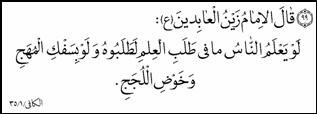 ٩٩ قَالَ الإمَامُ زَيْنُ الْعَابِدينَ (ع):
لَوْ يَعْلَمُ النّاسُ مَا فى طَلَبِ الْعِلمِ لَطَلَبُوهُ وَ لَوْ بِسَفْكِ الْمُهَجِ
وَ خَوْضِ الْلُجَجِ.
الكافى/١/٣٥